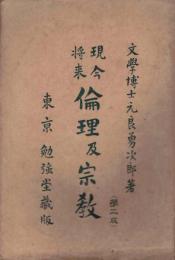 文學博士元良勇次郎著
現今
將來
倫理及宗教
（第二版）
東京 勉強堂藏版